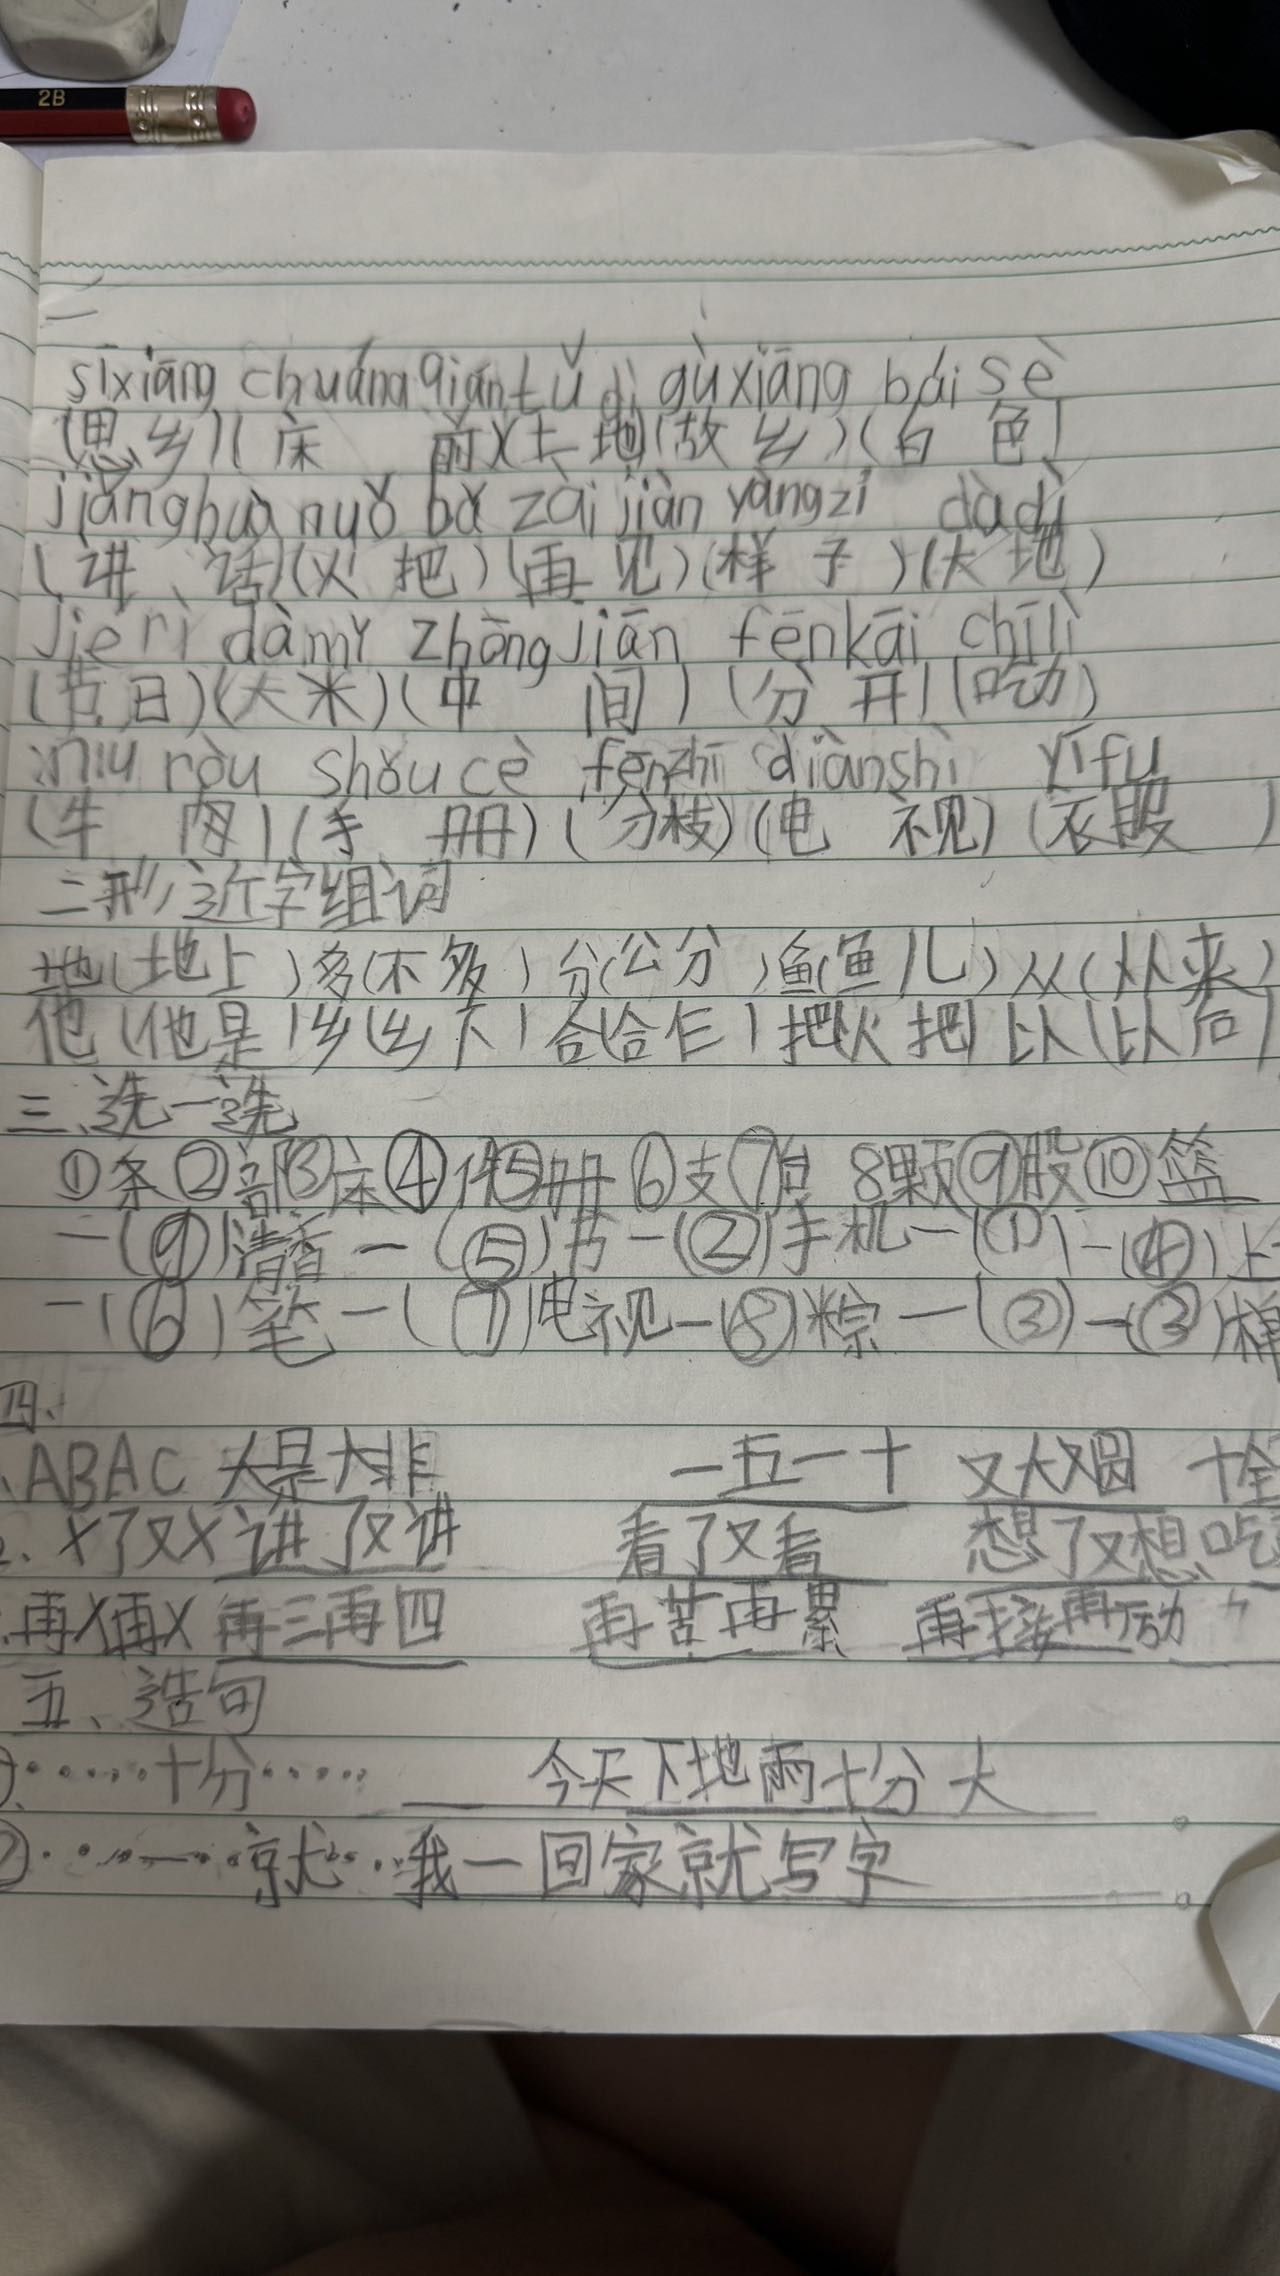 2B
一
sīxiāng chuángqián tǔ dì gùxiāng bái sè
(思乡)(床 前)(土地)(故乡)(白色)
jiǎnghuà huǒ bǎ zài jiàn yàngzi dàdì
(讲、话)(火把)(再见)(样子)(大地)
jiérì dàmǐ zhōngjiān fēnkāi chīlì
(节日)(大米)(中间)(分开)(吃力)
niú ròu shǒu cè fēnzhī diànshì yīfu
(牛肉)(手册)(分枝)(电视)(衣服)
二形近字组词
地(地上)多(不多)分(公分)鱼(鱼儿)从(从来)
他(他是)乡(乡下)合(合仨)把(火把)以(以后)
三、选一选
①条②部③床④件⑤册⑥支⑦台 8颗⑨股⑩篮
一(⑨)清香一(⑤)书一(②)手机一(①)一(④)上
一(⑥)笔一(⑦)电视一(⑧)粽一(③)一(③)棉
四、
、ABAC 大是大非 一五一十 又大又圆 十全
2、X了又X 讲了又讲 看了又看 想了又想 吃
.再X再X 再三再四 再苦再累 再接再励
五、造句
……十分…… 今天下地雨十分大。
②……就…我一回家就写字。